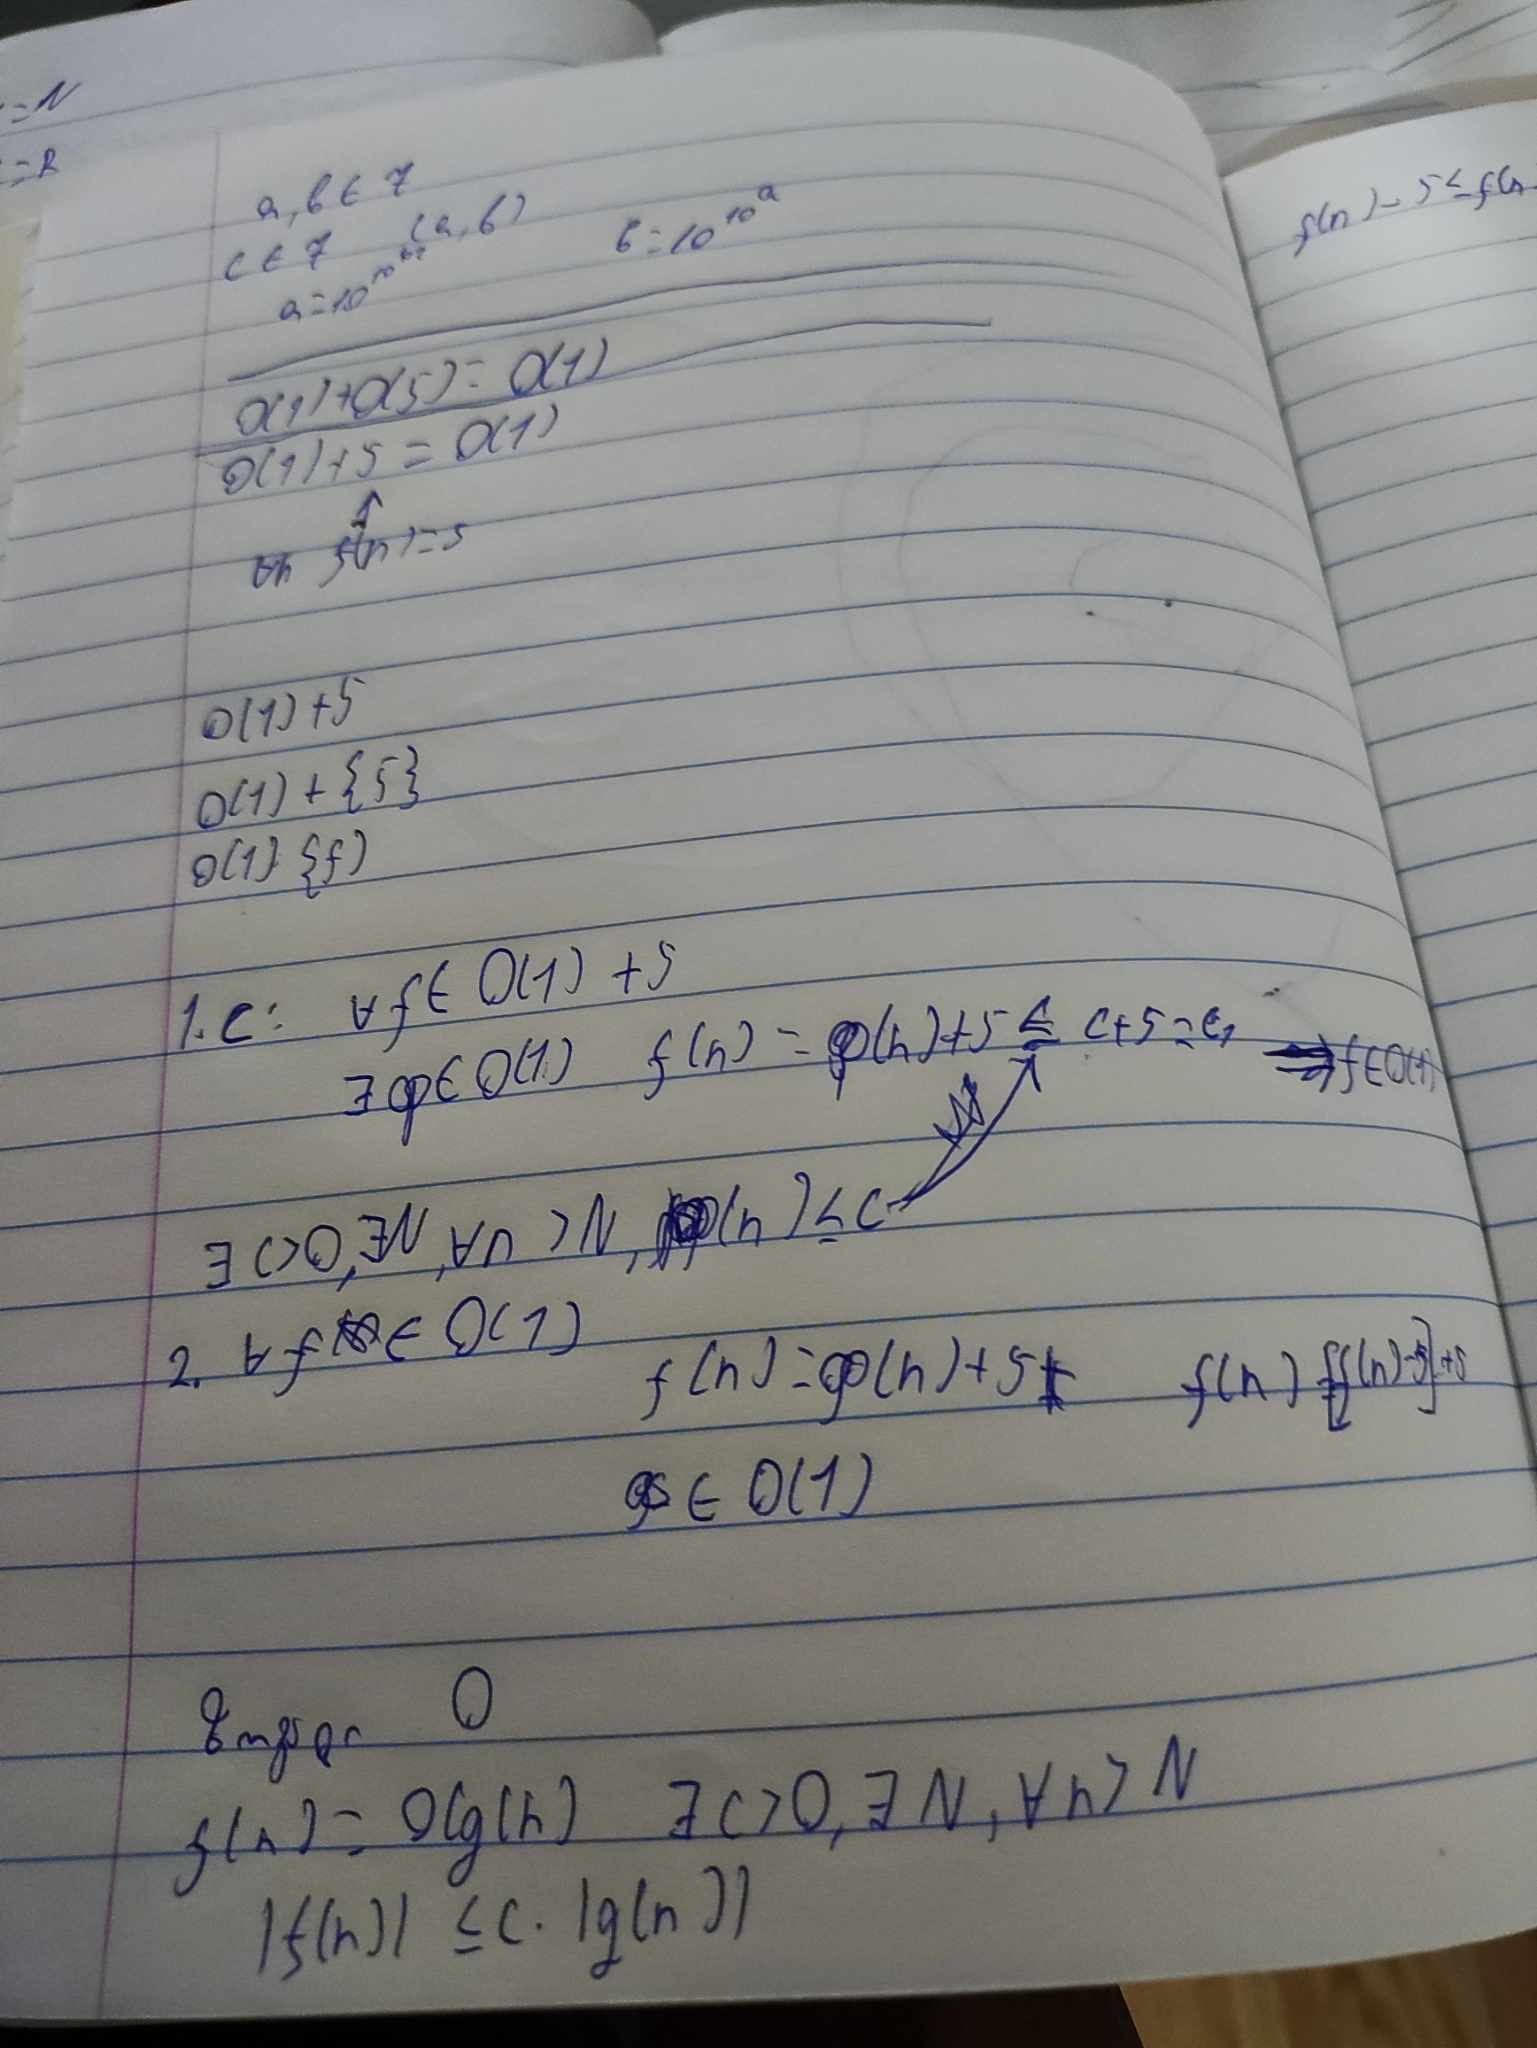 =N
=R
a, b ∈ Z
c ∈ Z (a, b)
a = 10^10 b = 10^10^a
O(1) + O(5) = O(1)
O(1) + 5 = O(1)
∀n f(n) = 5
O(1) + 5
O(1) + {5}
O(1) {f}
1. ⊂: ∀f ∈ O(1) + 5
∃φ ∈ O(1) f(n) = φ(n) + 5 ≤ c + 5 = c₁ ⇒ f ∈ O(1)
∃c > 0, ∃N, ∀n > N, φ(n) ≤ c
2. ∀f ∈ O(1)
f(n) = φ(n) + 5 f(n) [f(n) - 5] + 5
φ ∈ O(1)
O
f(n) = O(g(n) ∃c > 0, ∃N, ∀n > N
|f(n)| ≤ c · |g(n)|
f(n) - 5 ≤ f(n